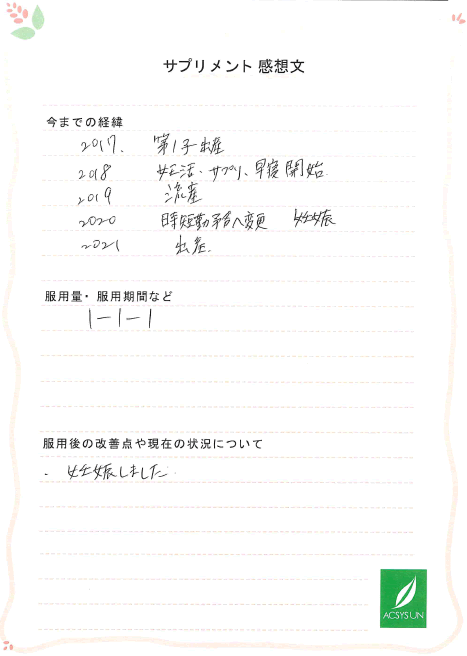 サプリメント 感想文
今までの経緯
2017. 第1子出産
2018 妊活・サプリ、早寝開始
2019 流産
2020 時短勤務へ変更 妊娠
2021 出産.
服用量・服用期間など
1－1－1
服用後の改善点や現在の状況について
・ 妊娠しました
ACSYSUN